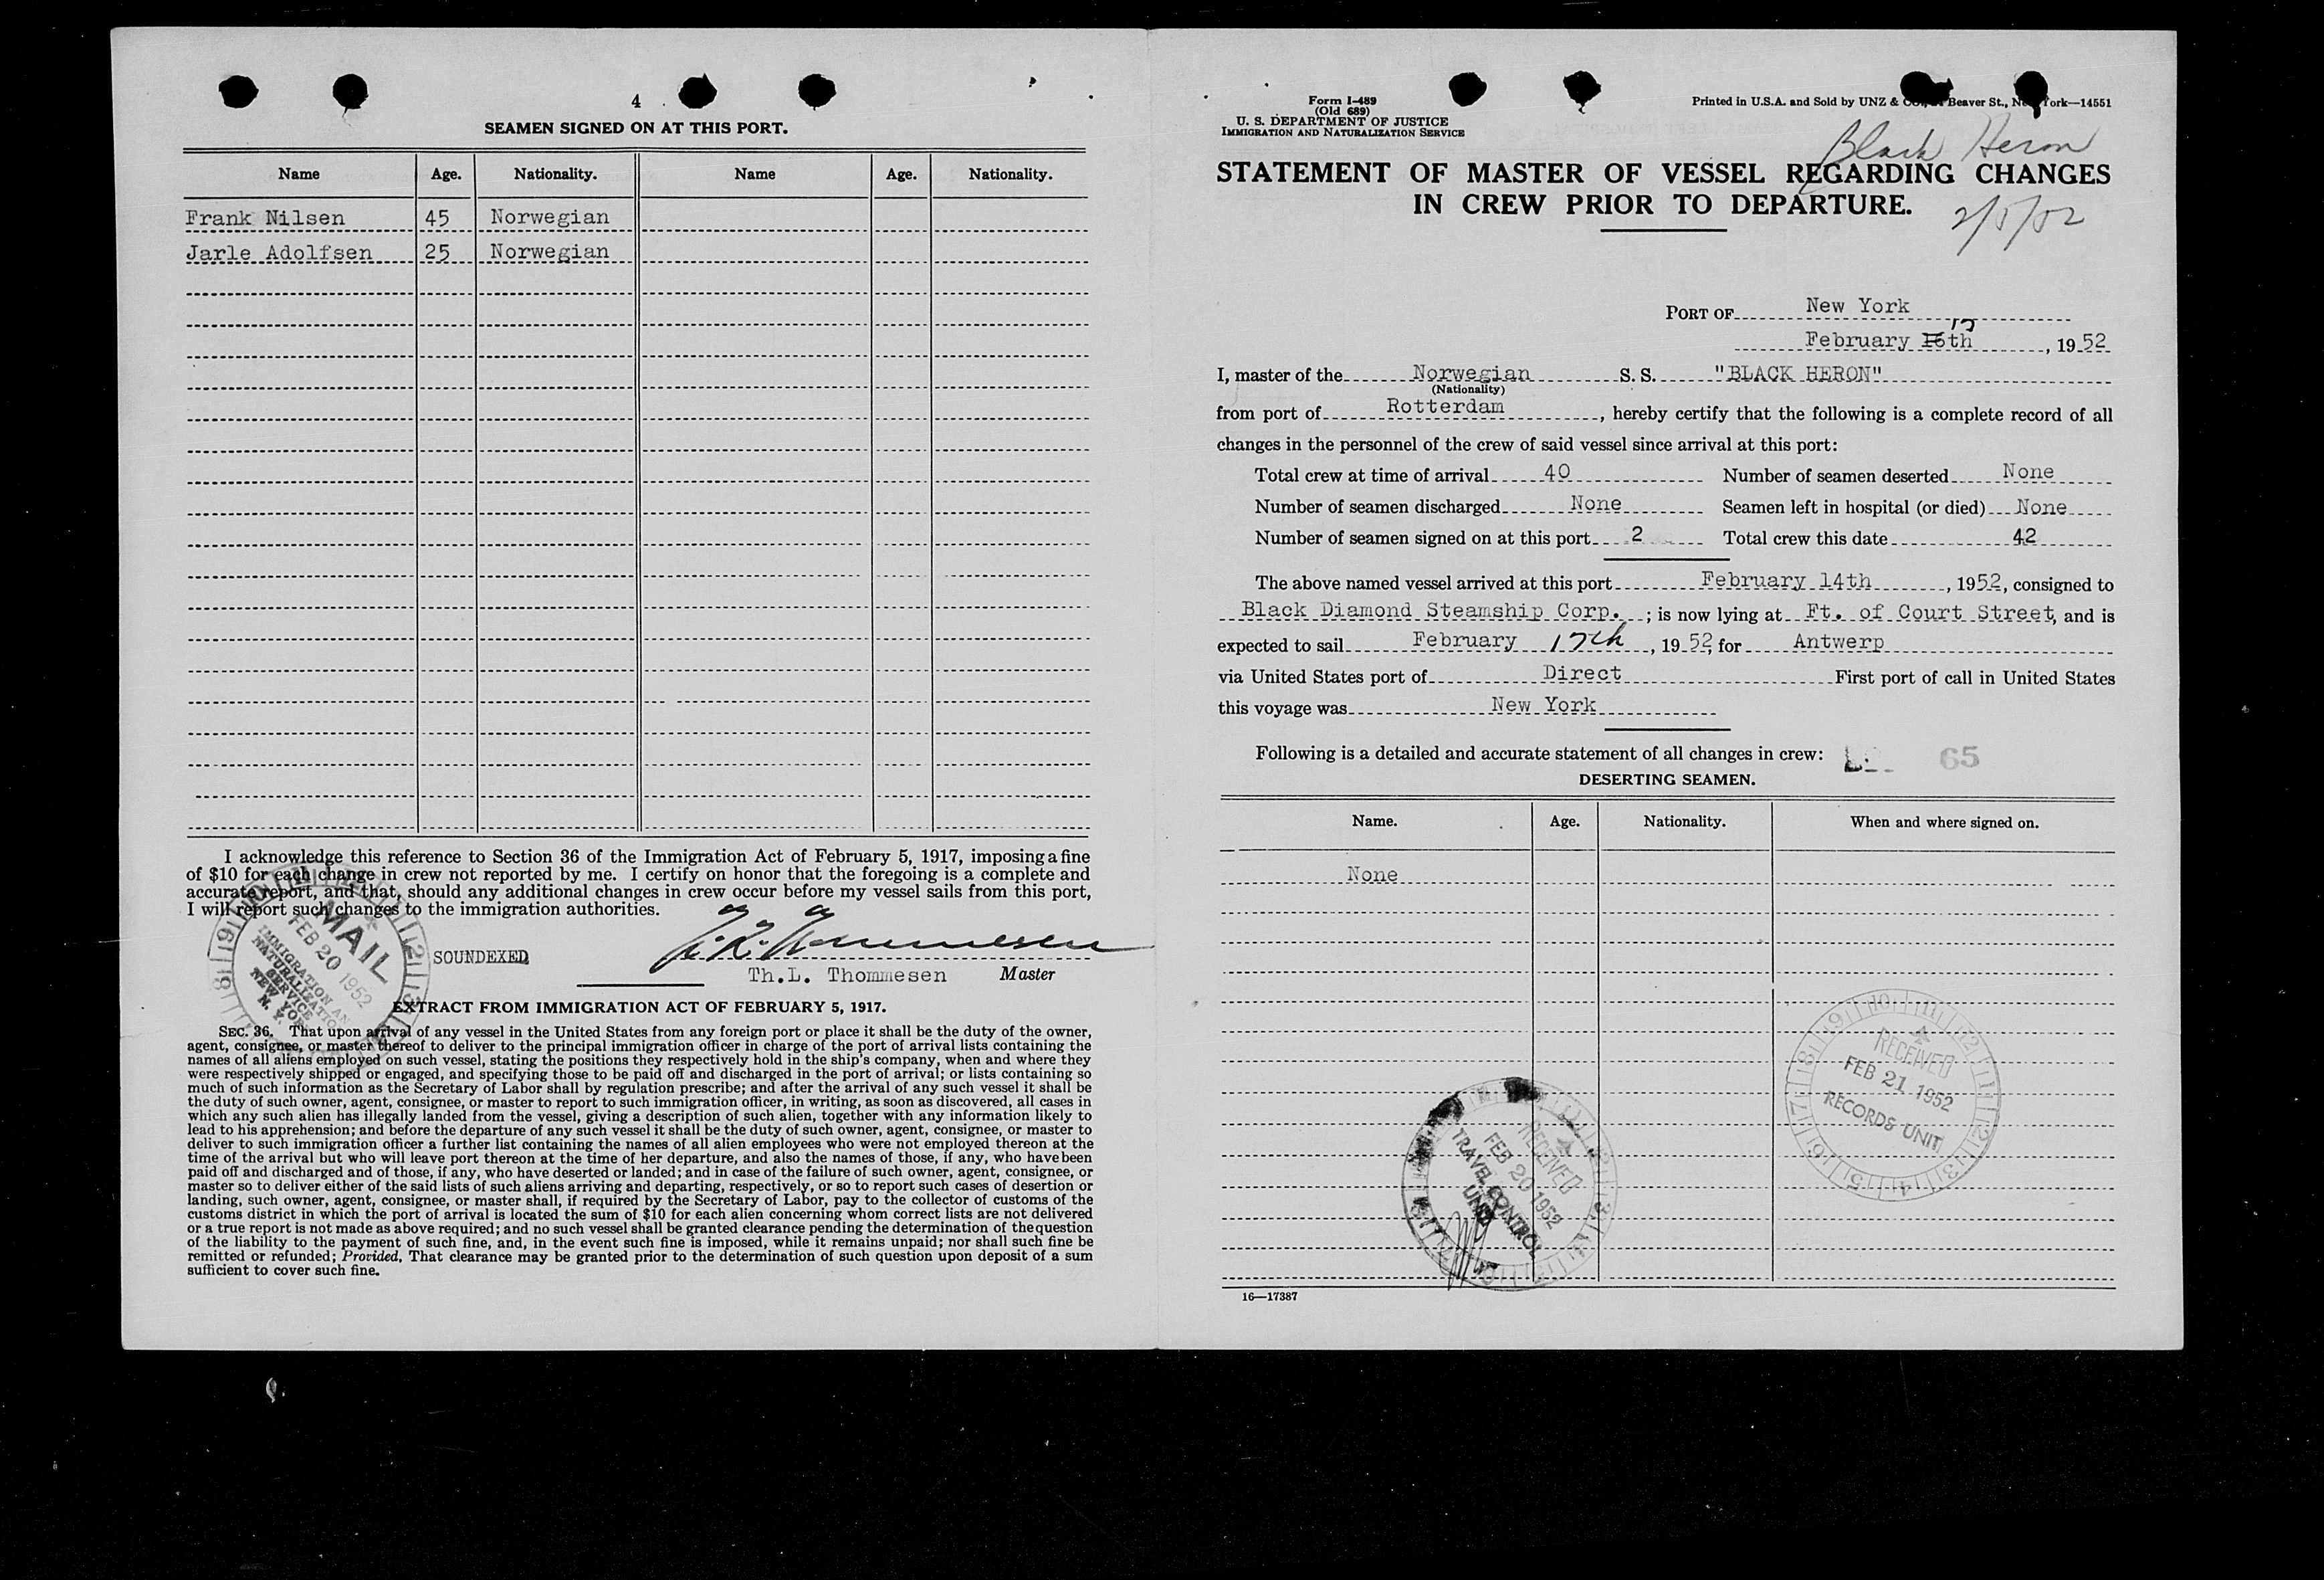 4
SEAMEN SIGNED ON AT THIS PORT.
Name Age. Nationality. Name Age. Nationality.
Frank Nilsen 45 Norwegian
Jarle Adolfsen 25 Norwegian
I acknowledge this reference to Section 36 of the Immigration Act of February 5, 1917, imposing a fine
of $10 for each change in crew not reported by me. I certify on honor that the foregoing is a complete and
accurate report, and that, should any additional changes in crew occur before my vessel sails from this port,
I will report such changes to the immigration authorities.
MAIL
FEB 20 1952
IMMIGRATION AND
NATURALIZATION
SERVICE
NEW YORK
N. Y.
SOUNDEXED
Th.L. Thommesen Master
EXTRACT FROM IMMIGRATION ACT OF FEBRUARY 5, 1917.
SEC. 36. That upon arrival of any vessel in the United States from any foreign port or place it shall be the duty of the owner,
agent, consignee, or master thereof to deliver to the principal immigration officer in charge of the port of arrival lists containing the
names of all aliens employed on such vessel, stating the positions they respectively hold in the ship's company, when and where they
were respectively shipped or engaged, and specifying those to be paid off and discharged in the port of arrival; or lists containing so
much of such information as the Secretary of Labor shall by regulation prescribe; and after the arrival of any such vessel it shall be
the duty of such owner, agent, consignee, or master to report to such immigration officer, in writing, as soon as discovered, all cases in
which any such alien has illegally landed from the vessel, giving a description of such alien, together with any information likely to
lead to his apprehension; and before the departure of any such vessel it shall be the duty of such owner, agent, consignee, or master to
deliver to such immigration officer a further list containing the names of all alien employees who were not employed thereon at the
time of the arrival but who will leave port thereon at the time of her departure, and also the names of those, if any, who have been
paid off and discharged and of those, if any, who have deserted or landed; and in case of the failure of such owner, agent, consignee, or
master so to deliver either of the said lists of such aliens arriving and departing, respectively, or so to report such cases of desertion or
landing, such owner, agent, consignee, or master shall, if required by the Secretary of Labor, pay to the collector of customs of the
customs district in which the port of arrival is located the sum of $10 for each alien concerning whom correct lists are not delivered
or a true report is not made as above required; and no such vessel shall be granted clearance pending the determination of the question
of the liability to the payment of such fine, and, in the event such fine is imposed, while it remains unpaid; nor shall such fine be
remitted or refunded; Provided, That clearance may be granted prior to the determination of such question upon deposit of a sum
sufficient to cover such fine.
Form I-489
(Old 689)
U. S. DEPARTMENT OF JUSTICE
IMMIGRATION AND NATURALIZATION SERVICE
Printed in U.S.A. and Sold by UNZ & Beaver St., New York—14551
Black Heron
STATEMENT OF MASTER OF VESSEL REGARDING CHANGES
IN CREW PRIOR TO DEPARTURE.
PORT OF New York
17
February 16th, 1952
I, master of the Norwegian S. S. "BLACK HERON"
(Nationality)
from port of Rotterdam, hereby certify that the following is a complete record of all
changes in the personnel of the crew of said vessel since arrival at this port:
Total crew at time of arrival 40 Number of seamen deserted None
Number of seamen discharged None Seamen left in hospital (or died) None
Number of seamen signed on at this port 2 Total crew this date 42
The above named vessel arrived at this port February 14th, 1952, consigned to
Black Diamond Steamship Corp.; is now lying at Ft. of Court Street, and is
expected to sail February 17th, 1952, for Antwerp
via United States port of Direct First port of call in United States
this voyage was New York
Following is a detailed and accurate statement of all changes in crew: 65
DESERTING SEAMEN.
Name. Age. Nationality. When and where signed on.
None
RECEIVED
FEB 21 1952
RECORDS UNIT
RECEIVED
FEB 20 1952
TRAVEL CONTROL
UNIT
16—17387